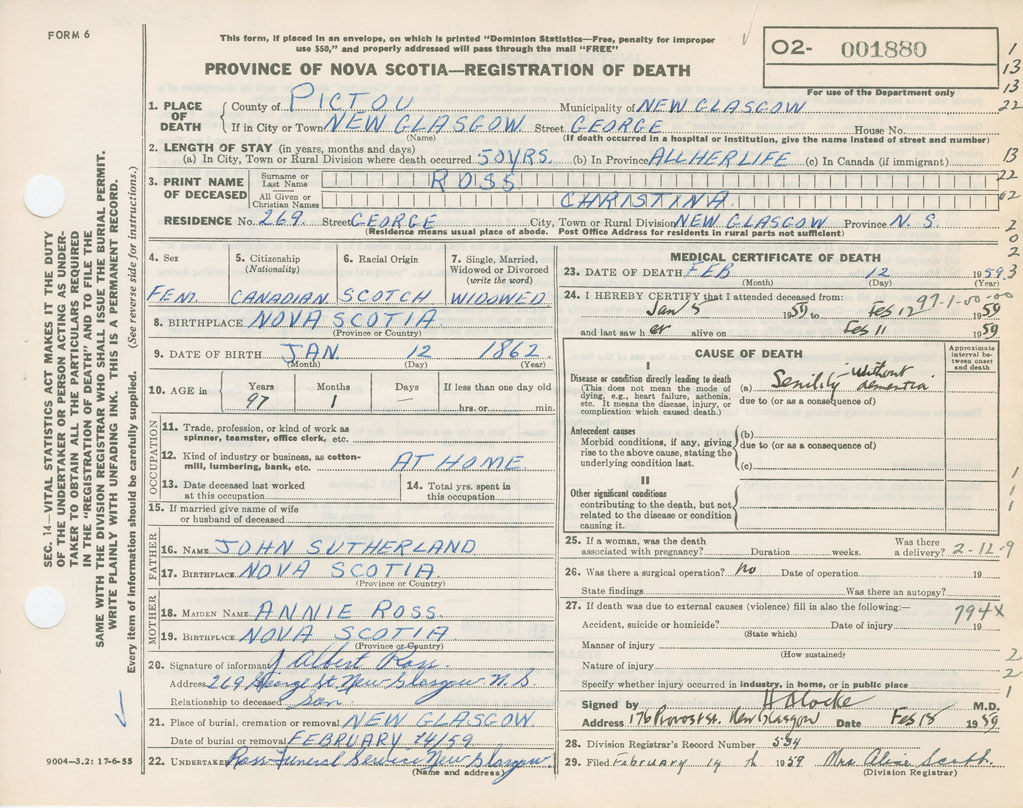 FORM 6
This form, if placed in an envelope, on which is printed "Dominion Statistics—Free, penalty for improper
use $50," and properly addressed will pass through the mail "FREE"
PROVINCE OF NOVA SCOTIA—REGISTRATION OF DEATH
02- 001880
For use of the Department only
1
13
13
22
13
22
02
2
0
2
3
1. PLACE OF DEATH
County of PICTOU Municipality of NEW GLASGOW
If in City or Town NEW GLASGOW Street GEORGE House No.
(Name) (If death occurred in a hospital or institution, give the name instead of street and number)
2. LENGTH OF STAY (in years, months and days)
(a) In City, Town or Rural Division where death occurred 50 YRS. (b) In Province ALL HER LIFE (c) In Canada (if immigrant)
3. PRINT NAME OF DECEASED
Surname or Last Name ROSS
All Given or Christian Names CHRISTINA.
RESIDENCE No. 269. Street GEORGE City, Town or Rural Division NEW GLASGOW Province N. S.
(Residence means usual place of abode. Post Office Address for residents in rural parts not sufficient)
4. Sex
FEM.
5. Citizenship (Nationality)
CANADIAN
6. Racial Origin
SCOTCH
7. Single, Married, Widowed or Divorced (write the word)
WIDOWED
8. BIRTHPLACE NOVA SCOTIA
(Province or Country)
9. DATE OF BIRTH JAN. 12 1862.
(Month) (Day) (Year)
10. AGE in Years Months Days If less than one day old
97 1 — hrs. or min.
OCCUPATION
11. Trade, profession, or kind of work as
spinner, teamster, office clerk, etc.
12. Kind of industry or business, as cotton-
mill, lumbering, bank, etc. AT HOME
13. Date deceased last worked
at this occupation
14. Total yrs. spent in
this occupation
15. If married give name of wife
or husband of deceased
FATHER
16. NAME JOHN SUTHERLAND
17. BIRTHPLACE NOVA SCOTIA.
(Province or Country)
MOTHER
18. MAIDEN NAME ANNIE ROSS.
19. BIRTHPLACE NOVA SCOTIA
(Province or Country)
20. Signature of informant J Albert Ross.
Address 269 George St. New Glasgow N. S.
Relationship to deceased son.
21. Place of burial, cremation or removal NEW GLASGOW.
Date of burial or removal FEBRUARY 14/59
22. UNDERTAKER Ross Funeral Service New Glasgow
(Name and address)
MEDICAL CERTIFICATE OF DEATH
23. DATE OF DEATH FEB 12 1959
(Month) (Day) (Year)
24. I HEREBY CERTIFY that I attended deceased from: 97-1-00-00
Jan 5 1959 to Feb 12 1959
and last saw her alive on Feb 11 1959
CAUSE OF DEATH
Approximate interval between onset and death
I
Disease or condition directly leading to death
(This does not mean the mode of
dying, e.g., heart failure, asthenia,
etc. It means the disease, injury, or
complication which caused death.)
(a) Senility without dementia
due to (or as a consequence of)
Antecedent causes
Morbid conditions, if any, giving
rise to the above cause, stating the
underlying condition last.
(b)
due to (or as a consequence of)
(c)
II
Other significant conditions
contributing to the death, but not
related to the disease or condition
causing it.
1
1
1
25. If a woman, was the death
associated with pregnancy? Duration weeks. Was there
a delivery? 2-12-9
26. Was there a surgical operation? no Date of operation 19
State findings Was there an autopsy?
27. If death was due to external causes (violence) fill in also the following:— 794X
Accident, suicide or homicide? Date of injury 19
(State which)
Manner of injury
(How sustained)
2
Nature of injury
2
Specify whether injury occurred in industry, in home, or in public place
1
Signed by H A Locke M.D.
Address 176 Provost St. New Glasgow Date Feb 18 1959
28. Division Registrar's Record Number 534
29. Filed February 14 th 1959 Mrs Aline Scott.
(Division Registrar)
SEC. 14—VITAL STATISTICS ACT MAKES IT THE DUTY
OF THE UNDERTAKER OR PERSON ACTING AS UNDER-
TAKER TO OBTAIN ALL THE PARTICULARS REQUIRED
IN THE "REGISTRATION OF DEATH" AND TO FILE THE
SAME WITH THE DIVISION REGISTRAR WHO SHALL ISSUE THE BURIAL PERMIT.
WRITE PLAINLY WITH UNFADING INK. THIS IS A PERMANENT RECORD.
Every item of information should be carefully supplied. (See reverse side for instructions.)
9004—3.2: 17-6-55